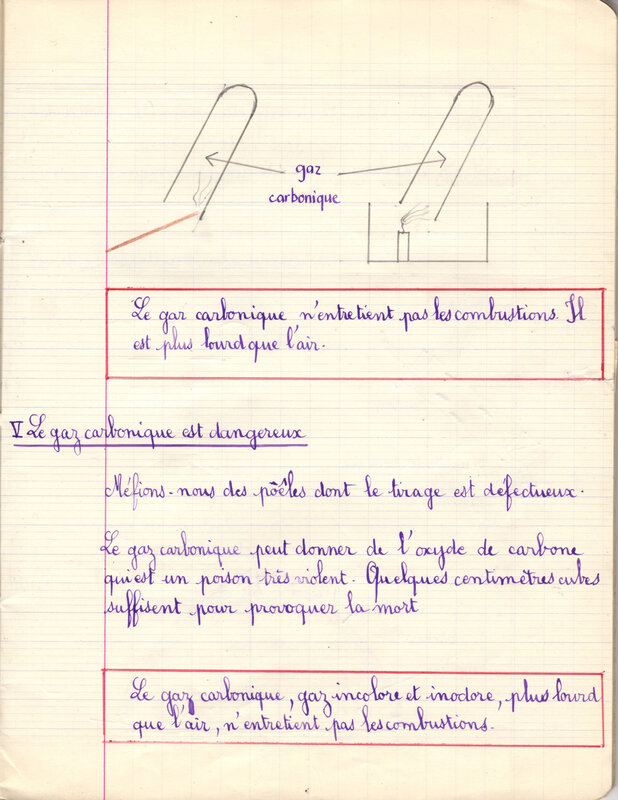 gaz
carbonique
Le gaz carbonique n'entretient pas les combustions. Il
est plus lourd que l'air.
V Le gaz carbonique est dangereux
Méfions-nous des poêles dont le tirage est défectueux.
Le gaz carbonique peut donner de l'oxyde de carbone
qui est un poison très violent. Quelques centimètres cubes
suffisent pour provoquer la mort
Le gaz carbonique, gaz incolore et inodore, plus lourd
que l'air, n'entretient pas les combustions.